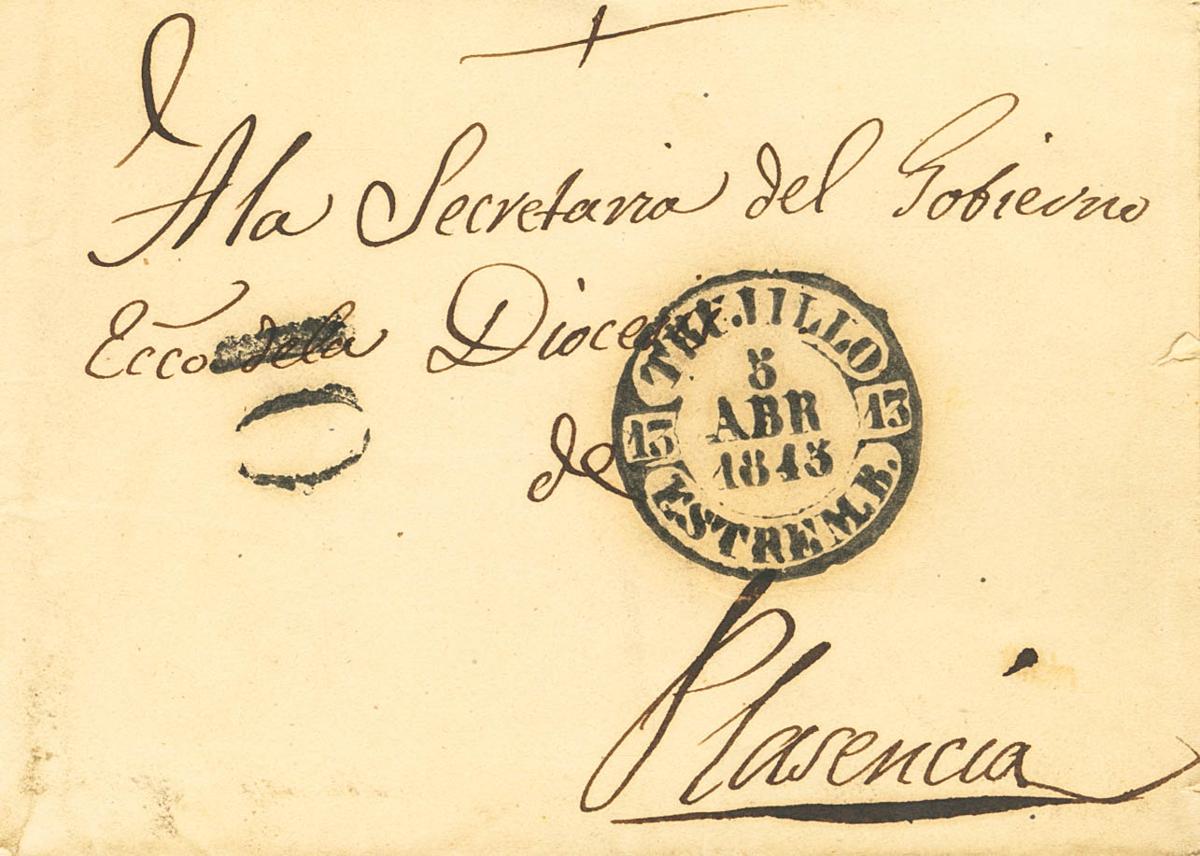 A la Secretaria del Gobierno
Ecco. de la Diocesis
de
TRUJILLO
5
ABR
1843
13
13
ESTREM.B.
Plasencia